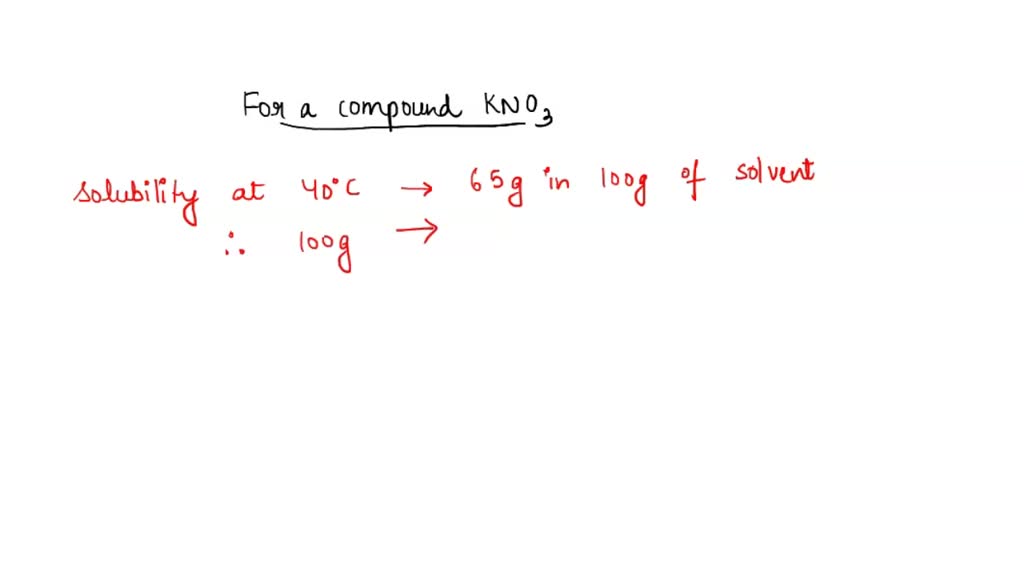 For a compound KNO₃
solubility at 40°C → 65g in 100g of solvent
∴ 100g →